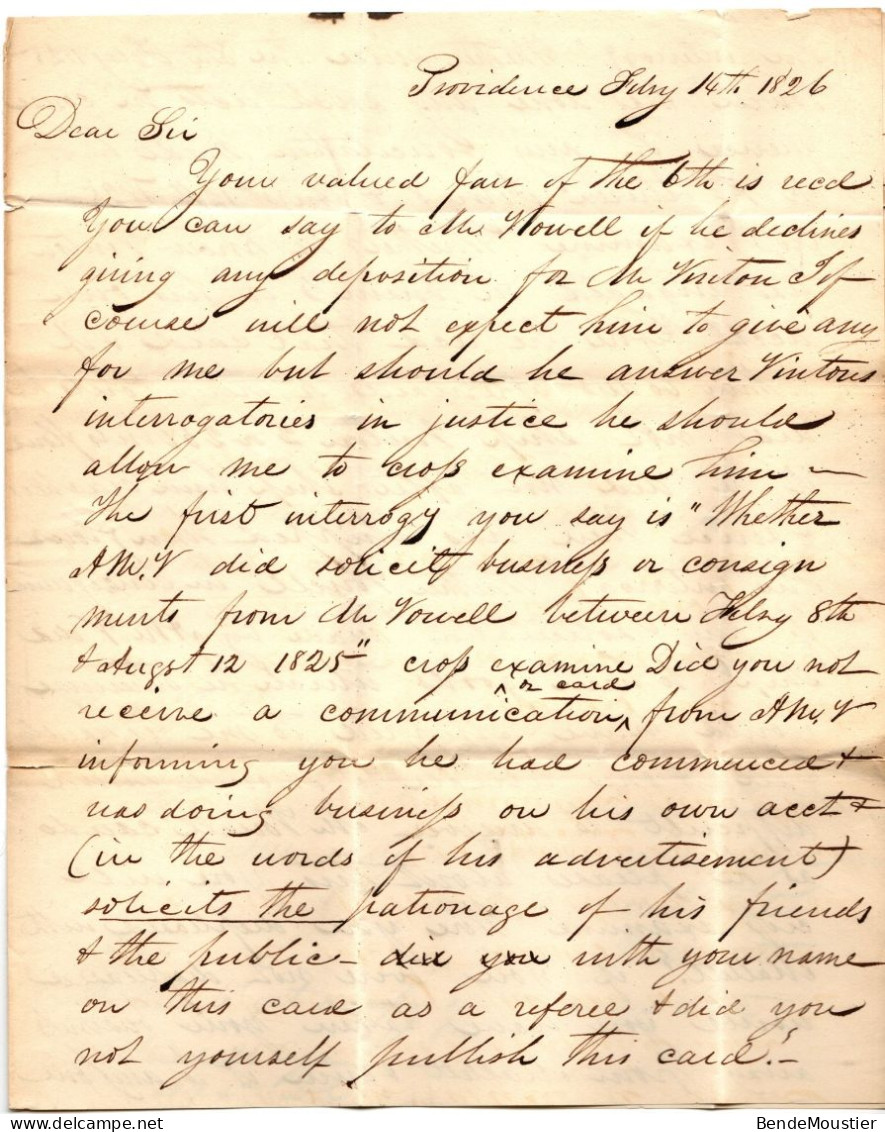 Providence Feby 14th 1826
Dear Sir
Your valued favr of the 6th is recd
You can say to Mr Vowell if he declines
giving any deposition for Mr Vinton I of
course will not expect him to give any
for me but should he answer Vintons
interrogatories in justice he should
allow me to cross examine him —
The first interrogy you say is "Whether
A M. V did solicit business or consign
ments from Mr Vowell between Feby 8th
& Augst 12 1825" cross examine Did you not
or card
receive a communication from A M. V
informing you he had commenced &
was doing business on his own acct &
(in the words of his advertisement)
solicits the patronage of his friends
& the public - did you with your name
on this card as a referee & did you
not yourself publish this card? -
BendeMoustier